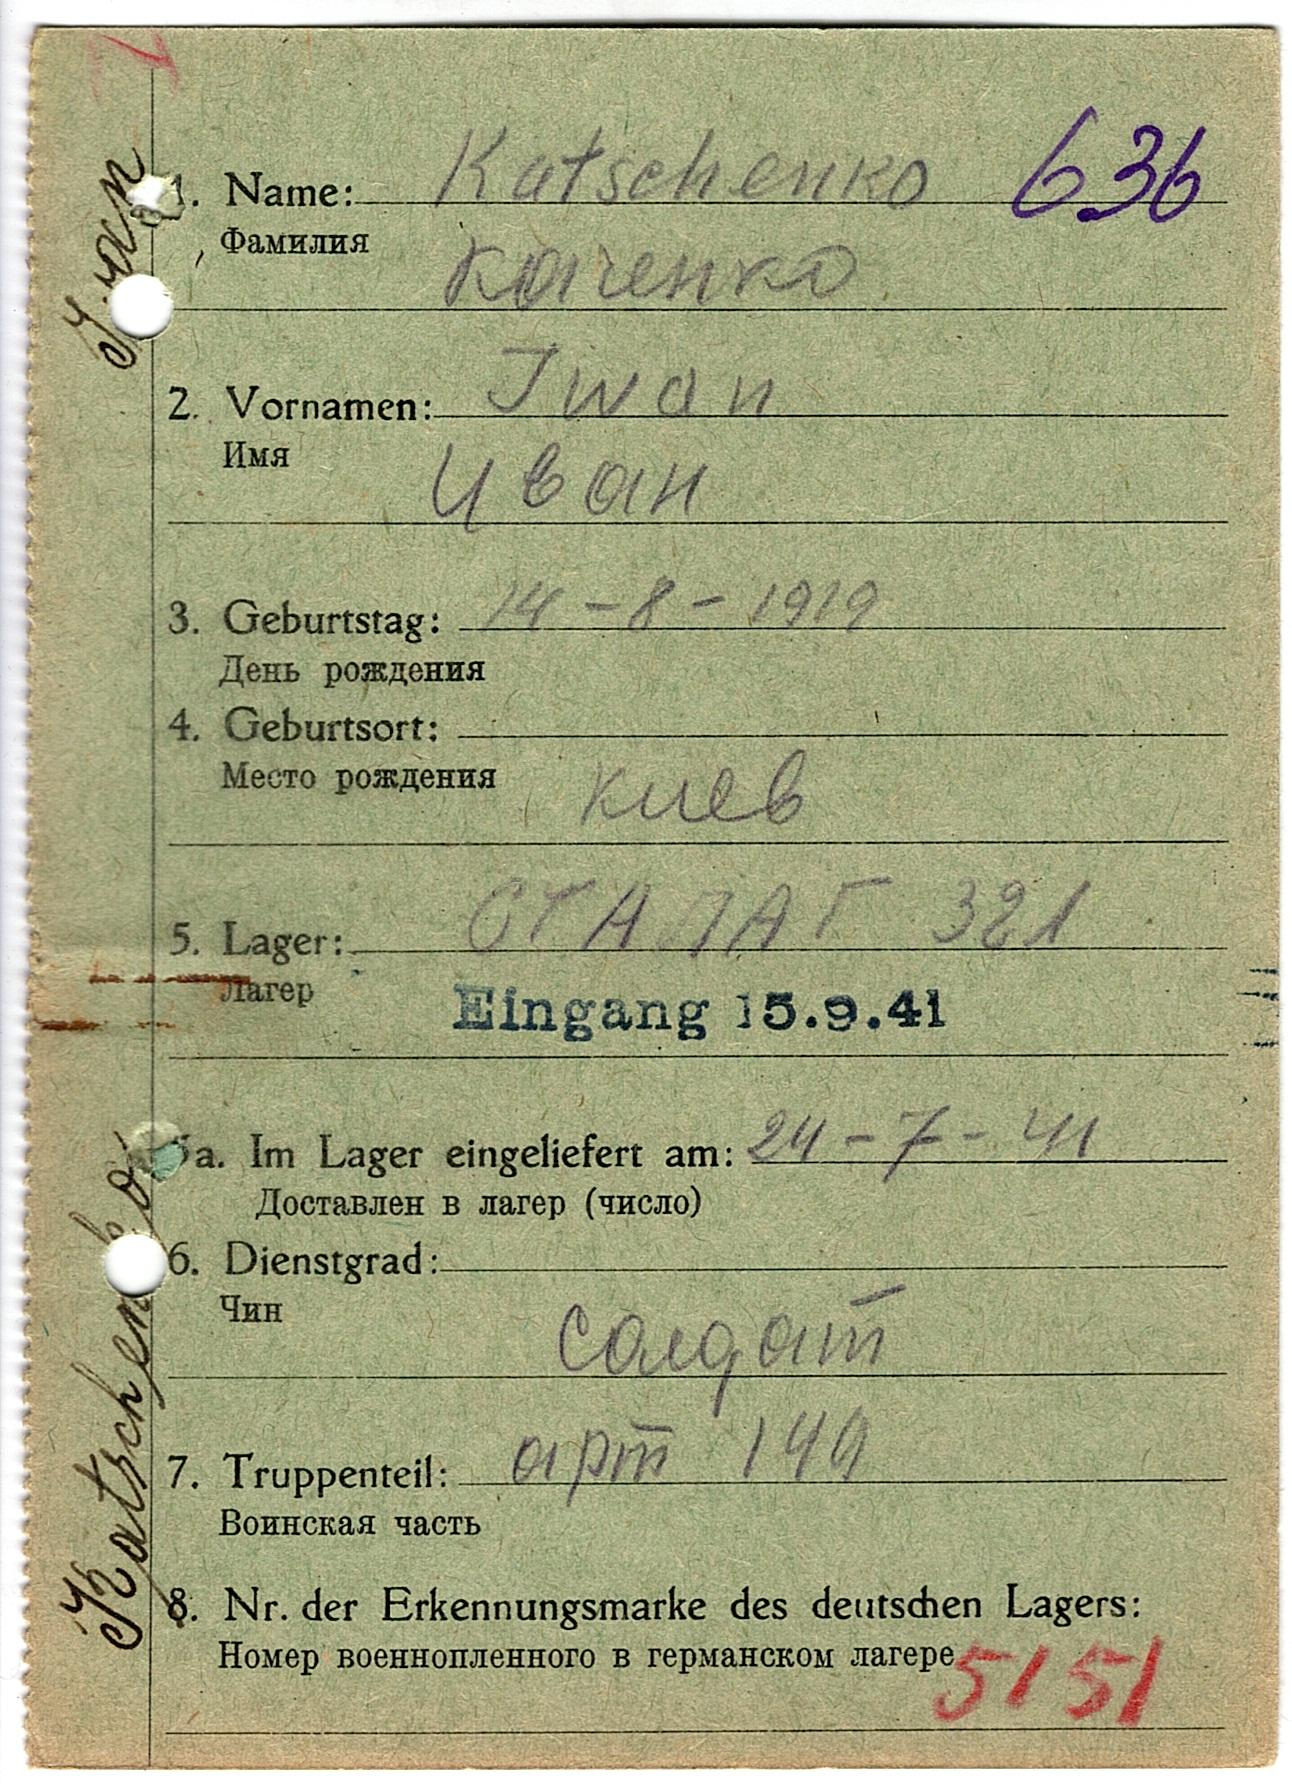 1. Name: Katschenko 636
Фамилия Каченко
2. Vornamen: Iwan
Имя Иван
3. Geburtstag: 14 - 8 - 1919
День рождения
4. Geburtsort:
Место рождения Киев
5. Lager: СТАЛАГ 321
Лагер Eingang 15.9.41
5a. Im Lager eingeliefert am: 24 - 7 - 41
Доставлен в лагер (число)
6. Dienstgrad:
Чин солдат
7. Truppenteil: арт 149
Воинская часть
8. Nr. der Erkennungsmarke des deutschen Lagers:
Номер военнопленного в германском лагере 5151
Katschenko Iwan